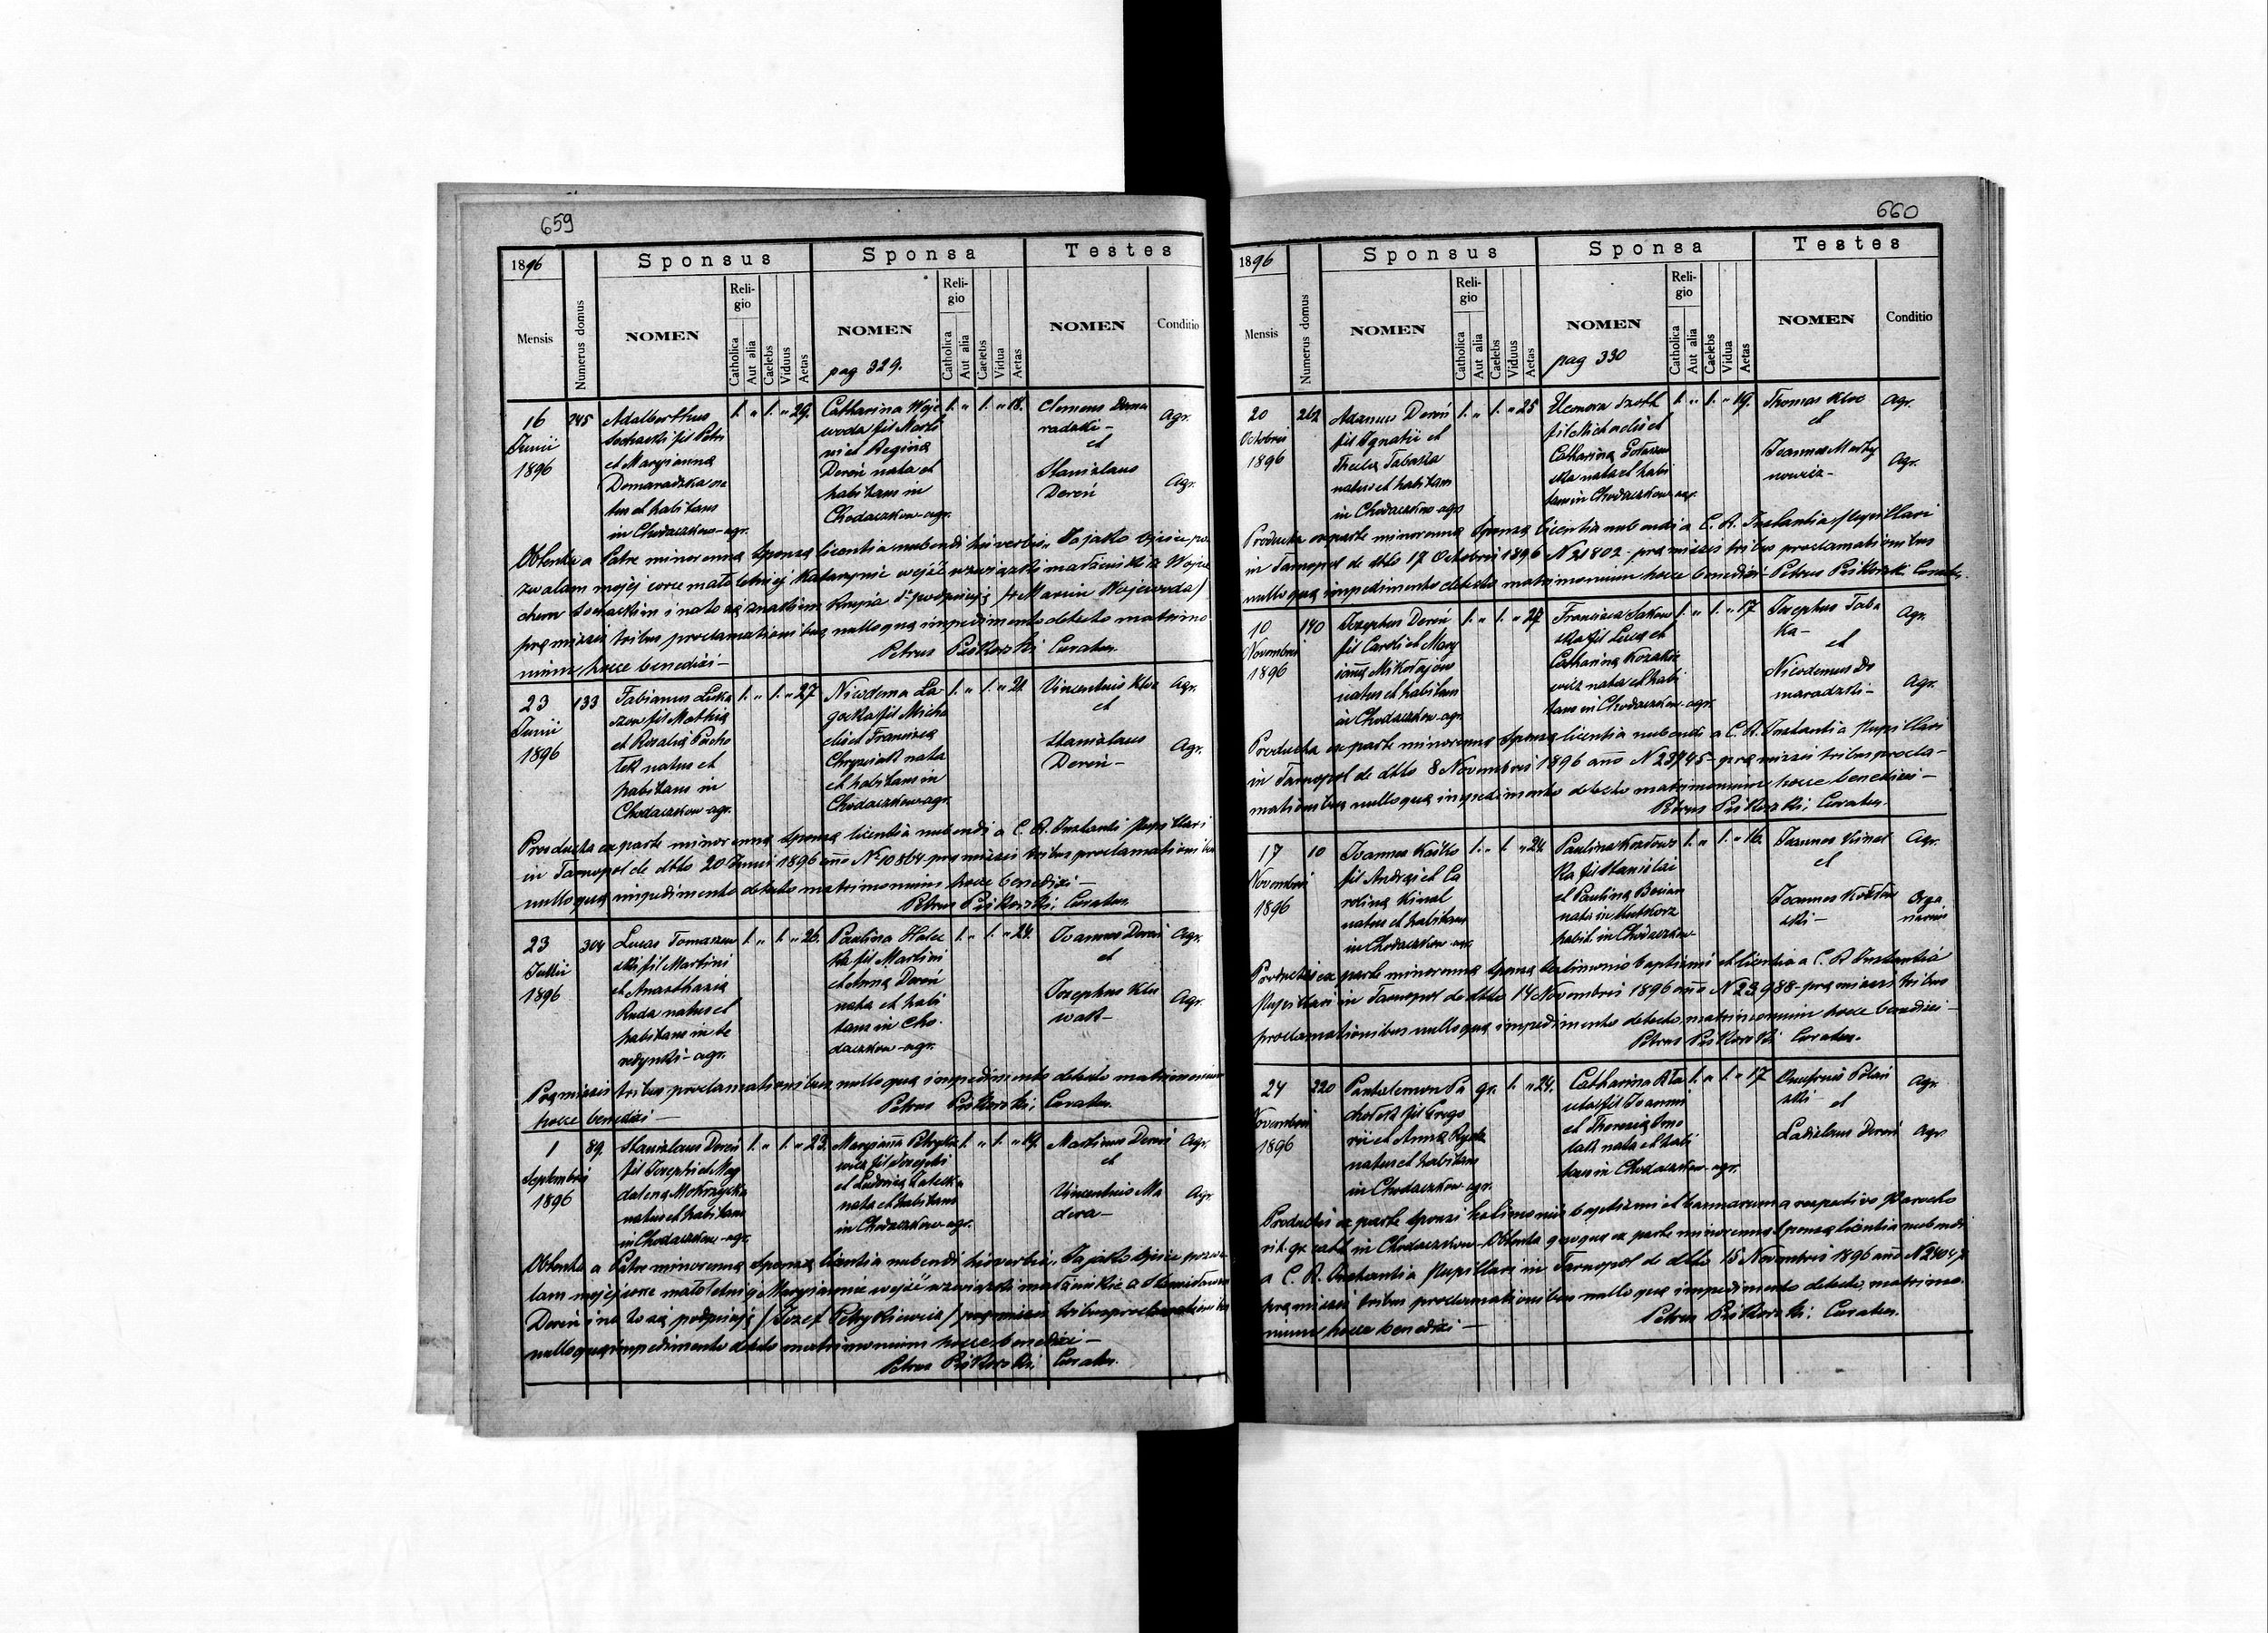 659
1896
Sponsus
Sponsa
Testes
Mensis
Numerus domus
NOMEN
Religio
Catholica
Aut alia
Caelebs
Viduus
Aetas
NOMEN
pag 329.
Religio
Catholica
Aut alia
Caelebs
Vidua
Aetas
NOMEN
Conditio
16
Junii
1896
245
Adalberthus
Sochacki fil Petri
et Maryianna
Domaradzka na
tus et habitans
in Chodaczkow-agr.
1. " 1. " 29.
Catharina Woje
woda fil Marti
ni et Regina
Dereń nata et
habitans in
Chodaczkow-agr.
1. " 1. " 18.
Clemens Doma
radzki-
et
Stanislaus
Dereń
Agr.
Agr.
Obtenta a Patre minorenna Sponsa licentia nubendi his verbis „Ja jako Ojciec po
zwalam mojej corce małoletniej Katarzynie wejść w związki małżeńskie z Wojcie
chem Sochackim i na to się znakiem Krzyża Sgo podpisuję /+ Marcin Wojewoda/
præmissis tribus proclamationibus nulloque impedimento detecto matrimo
nium hocce benedixi-
Petrus Piśkorski Curatus.
23
Junii
1896
133
Fabianus Luka
szow fil Mathia
et Rozalia Pacho
łek natus et
habitans in
Chodaczkow agr.
1. " 1. " 27
Nicodema La
gocka fil Micha
elis et Francisca
nata
et habitans in
Chodaczkow agr.
1. " 1. " 21.
Vincentius Kloc
et
Stanislaus
Dereń-
Agr.
Agr.
Producta ex parte minorenna Sponsa licentia nubendi a C. R. Instanti Pupillari
in Tarnopol de dtto 20 Junii 1896 año No 10864 præmissis tribus proclamationibus
nulloque impedimento detecto matrimonium hocce benedixi-
Petrus Piśkorski, Curatus.
23
Julii
1896
304
Lucas Tomaszew
ski fil Martini
et Anasthasia
Ruda natus et
habitans in Se
redynki-agr.
1. " 1. " 26.
Paulina Halec
ka fil Martini
et Anna Dereń
nata et habi
tans in Cho-
daczkow-agr.
1. " 1. " 24.
Joannes Dereń
et
Josephus Klu
wak-
Agr.
Agr.
Præmissis tribus proclamationibus nulloque impedimento detecto matrimonium
hocce benedixi-
Petrus Piśkorski, Curatus.
1
Septembris
1896
89.
Stanislaus Dereń
fil Josephi et Mag
dalena Mokrzycka
natus et habitans
in Chodaczkow-agr.
1. " 1. " 23.
Maryianna Petrykie
wicz fil Josephi
et Ludovica
nata et habitans
in Chodaczkow-agr.
1. " 1. " 19.
Martinus Dereń
et
Vincentius Ma
dera-
Agr.
Agr.
Obtenta a Patre minorenna Sponsa licentia nubendi his verbis „Ja jako Ojciec pozwa
lam mojej corce małoletniej Maryiannie wejść w związki małżeńskie z Stanisławem
Dereń i na to się podpisuję /Jozef Petrykiewicz/ præmissis tribus proclamationibus
nulloque impedimento detecto matrimonium hocce benedixi-
Petrus Piśkorski Curatus.
660
1896
Sponsus
Sponsa
Testes
Mensis
Numerus domus
NOMEN
Religio
Catholica
Aut alia
Caelebs
Viduus
Aetas
NOMEN
pag 330
Religio
Catholica
Aut alia
Caelebs
Vidua
Aetas
NOMEN
Conditio
20
Octobris
1896
262
Adamus Dereń
fil Ignatii et
Thecla Tabaka
natus et habitans
in Chodaczkow agr
1. " 1. " 25
Eleonora
fil Michaelis et
Catharina
nata et habi
tans in Chodaczkow-agr.
1. " 1. " 19.
Thomas Kloc
et
Joannes Marty
nowicz-
Agr.
Agr.
Producta ex parte minorenna Sponsa licentia nubendi a C. R. Instantia Pupillari
in Tarnopol de dtto 17 Octobris 1896 N 21802- præmissis tribus proclamationibus
nulloque impedimento detecto matrimonium hocce benedixi Petrus Piśkorski Curatus.
10
Novembris
1896
140
Josephus Dereń
fil Caroli et Mary
ianna Mikołajow
natus et habitans
in Chodaczkow-agr.
1. " 1. " 27
Francisca
fil Luca et
Catharina Kozakie
wicz nata et habi
tans in Chodaczkow-agr.
1. " 1. " 17
Josephus Taba
ka-
et
Nicodemus Do
maradzki-
Agr.
Agr.
Producta ex parte minorenna Sponsa licentia nubendi a C. R. Instantia Pupillari
in Tarnopol de dtto 8 Novembris 1896 año N 23745- præmissis tribus procla-
mationibus nulloque impedimento detecto matrimonium hocce benedixi-
Petrus Piśkorski, Curatus.
17
Novembris
1896
10
Joannes Kaśko
fil Andreæ et Ca
rolina Kinal
natus et habitans
in Chodaczkow agr.
1. " 1. " 24.
Paulina Kozłows
ka fil Stanislai
et Paulina Baran
nata in Kutkorz
habit. in Chodaczkow-
1. " 1. " 16.
Joannes Kinal
et
Joannes Kozłow
ski-
Agr.
Orga
narius
Productis ex parte minorenna Sponsa testimonio baptismi et licentia a C. R Instantia
Pupillari in Tarnopol de dtto 14 Novembris 1896 año N 23988- præmissis tribus
proclamationibus nulloque impedimento detecto matrimonium hocce benedixi-
Petrus Piśkorski Curatus.
24
Novembris
1896
220
Pantalemon Pa
chołek fil Grego
rii et Anna
natus et habitans
in Chodaczkow agr.
gr. 1. " 24.
Catharina
fil Joannis
et Theresia
nata et habi
tans in Chodaczkow-agr.
1. " 1. " 17
Onufrius Polań
ski- et
Ladislaus Dereń
Agr.
Agr
Productis ex parte Sponsi testimoniis baptismi et bannorum a respectivo Parocho
rit. gr. cath in Chodaczkow- Obtenta quoque ex parte minorenna Sponsa licentia nubendi
a C. R. Instantia Pupillari in Tarnopol de dtto 15 Novembris 1896 año N 24047
præmissis tribus proclamationibus nulloque impedimento detecto, matrimo
nium hocce benedixi-
Petrus Piśkorski, Curatus.